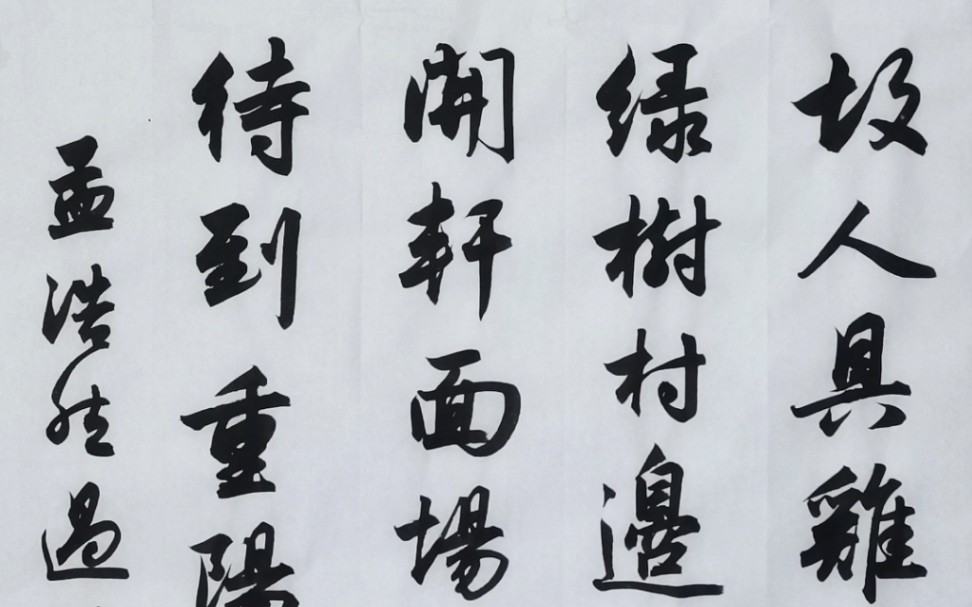 故人具雞
绿樹村邊
開軒面場
待到重陽
孟浩然過